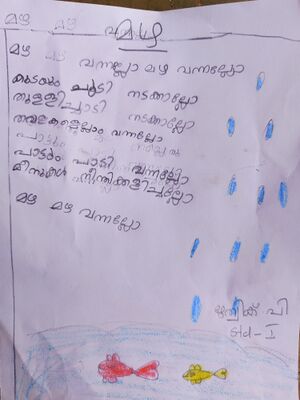 മഴ മഴ
മഴ
മഴ മഴ വന്നല്ലോ മഴ വന്നല്ലോ
കുടയും ചൂടി നടക്കാല്ലോ
തുള്ളിച്ചാടി നടക്കാല്ലോ
തവളകളെല്ലാം വന്നല്ലോ
പാട്ടും പാടി വന്നല്ലോ
മീനുകൾ നീന്തിക്കളിച്ചല്ലോ
മഴ മഴ വന്നല്ലോ
ഋത്വിക് പി
Std - I